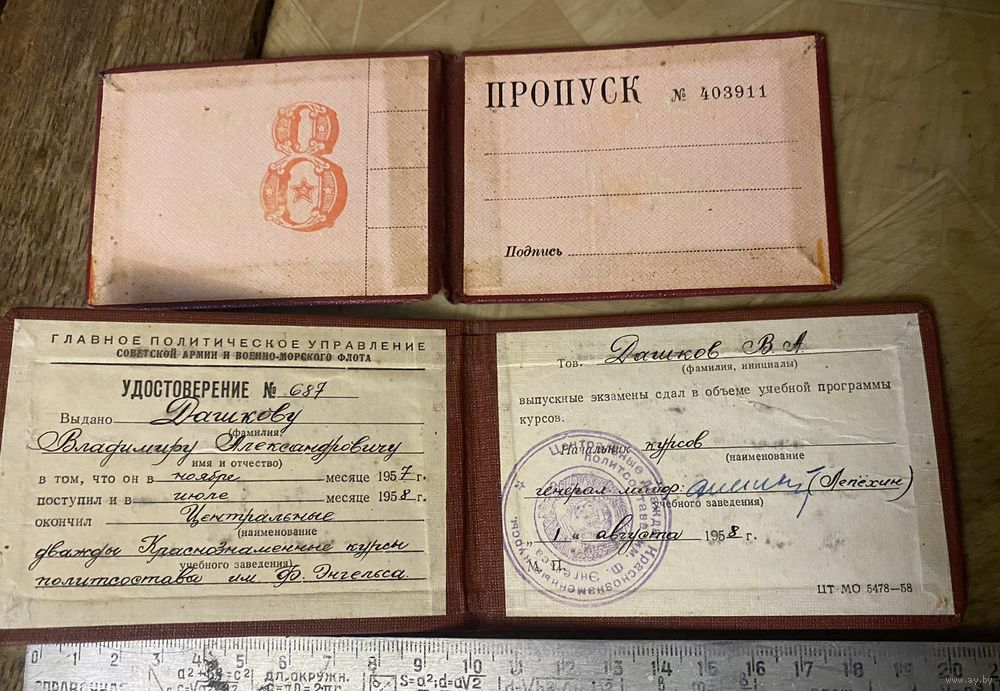 8
ПРОПУСК № 403911
Подпись
ГЛАВНОЕ ПОЛИТИЧЕСКОЕ УПРАВЛЕНИЕ
СОВЕТСКОЙ АРМИИ И ВОЕННО-МОРСКОГО ФЛОТА
УДОСТОВЕРЕНИЕ № 687
Выдано Дашкову
(фамилия,
Владимиру Александровичу
имя и отчество)
в том, что он в ноябре месяце 1957 г.
поступил и в июле месяце 1958 г.
окончил Центральные
(наименование
дважды Краснознаменные курсы
учебного заведения)
политсостава им. Ф. Энгельса.
Тов. Дашков В. А.
(фамилия, инициалы)
выпускные экзамены сдал в объеме учебной программы
курсов.
Начальник курсов
(наименование
генерал майор (Лепёхин)
учебного заведения)
„1“ августа 1958 г.
М. П.
ЦТ МО 5478—58
Центральные дважды Краснознаменные курсы
политсостава им. Ф. Энгельса
0 1 2 3 4 5 6 7 8 9 10 11 12 13 14 15 16 17 18 19 20 2
a²+b²=c² дл.окружн. S=a²;d=a√2
СПРАВОЧНАЯ
www.ay.by